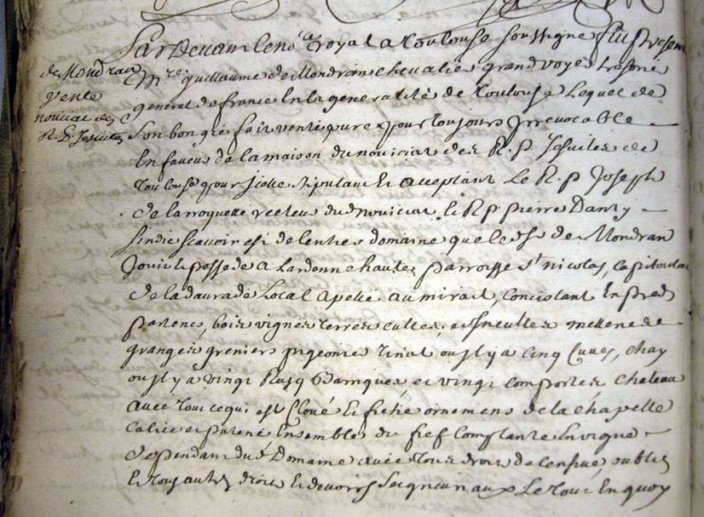 Par Devant le no.re Royal a Toulouse soussigne fut present
de Mondran
vente
noviciat des
R. P. Jesuites
M.re guillaume de Mondran chevalier grand voyer tresorier
general de france En la generalité de Toulouse Lequel de
son bon gré fait vente pure & pour toujours Irrevocable
En faveur de la maison du noviciat des R. P. Jesuites de
Toulouse pour Icelle stipulant Et acceptant Le R. p Joseph
de laroquette recteur dud noviciat, Et R p pierre Danty
sindic scavoir est de lentier domaine que led s.r de Mondran
Jouit Et possede a Lardenne haute, parroisse s.t nicolas, capitoulat
de la daurade Local apellé au mirail, concistant En preds
patenes, bois vignes terres cultes, et Incultes
granges greniers pigeonie tinal ou il y a cinq Cuves, chay
ou il y a vingt barriques, et vingt comportes chateau
avec tout ce qui est Cloué Et fiché ornemens de la chapelle
Calice et patene Ensemble du fief Consistant En vignes
dependant dud Domaine avec tous droits de censive, oublies
Et tous autres droits Et devoirs seigneuriaux Le tout En quoy